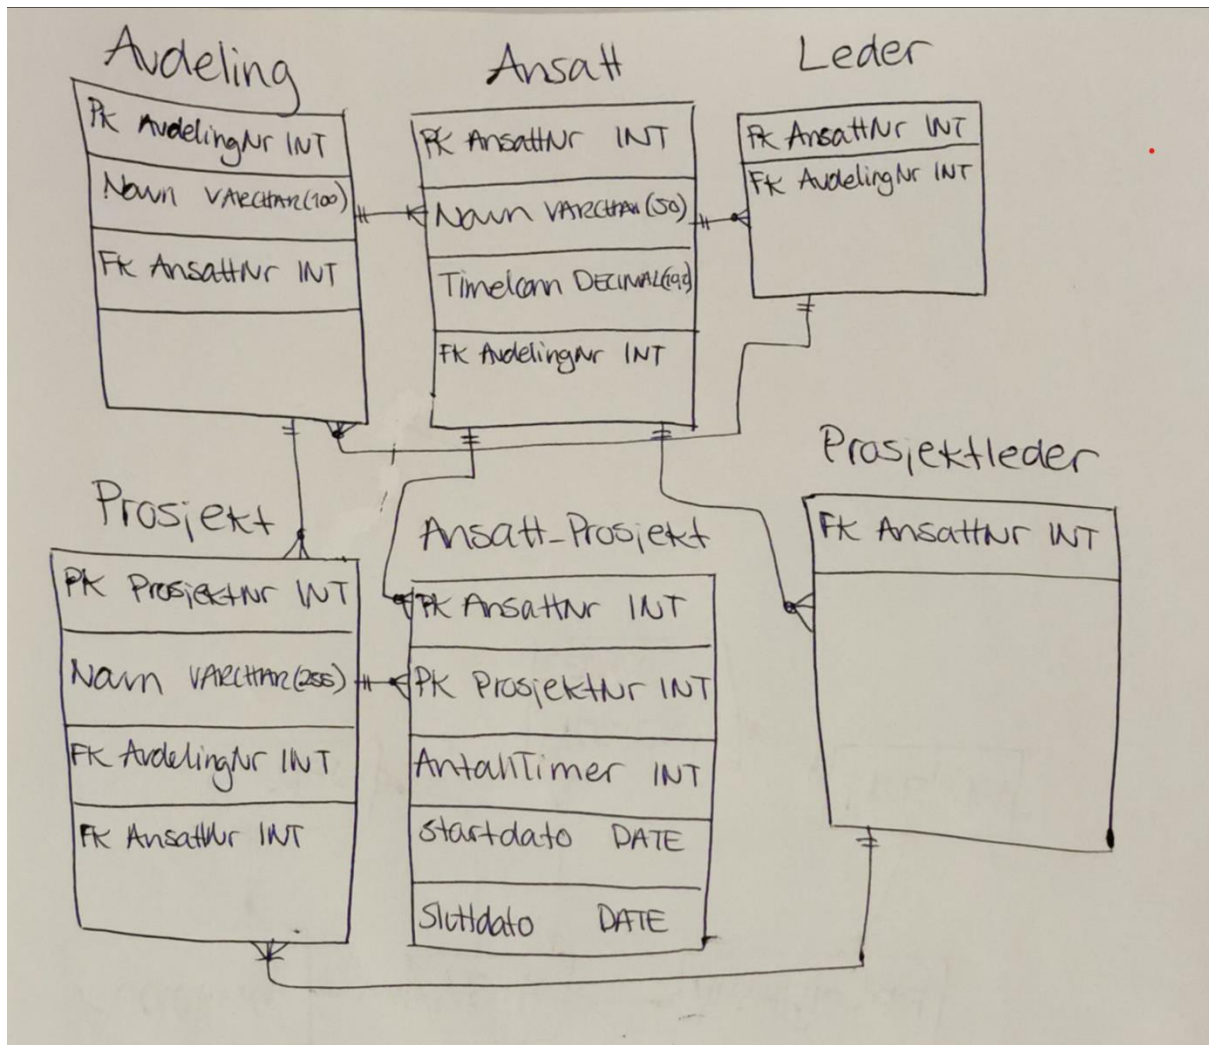 Avdeling
PK AvdelingNr INT
Navn VARCHAR(100)
FK AnsattNr INT
Ansatt
PK AnsattNr INT
Navn VARCHAR(50)
Timelønn DECIMAL(10,2)
FK AvdelingNr INT
Leder
PK AnsattNr INT
FK AvdelingNr INT
Prosjekt
PK ProsjektNr INT
Navn VARCHAR(255)
FK AvdelingNr INT
FK AnsattNr INT
Ansatt_Prosjekt
PK AnsattNr INT
PK ProsjektNr INT
AntallTimer INT
Startdato DATE
Sluttdato DATE
Prosjektleder
FK AnsattNr INT